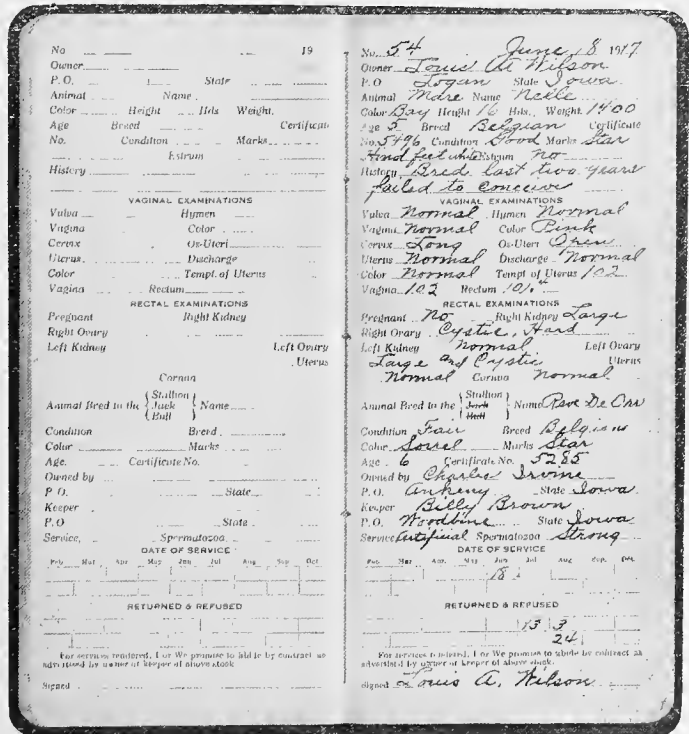 No 19
Owner
P. O. State
Animal Name
Color Height Hds Weight
Age Breed Certificate
No. Condition Marks
Estrum
History
VAGINAL EXAMINATIONS
Vulva Hymen
Vagina Color
Cervix Os-Uteri
Uterus Discharge
Color Tempt. of Uterus
Vagina Rectum
RECTAL EXAMINATIONS
Pregnant Right Kidney
Right Ovary
Left Kidney Left Ovary
Uterus
Cornua
Animal Bred to the { Stallion Jack Bull } Name
Condition Breed
Color Marks
Age. Certificate No.
Owned by
P. O. State
Keeper
P. O State
Service, Spermatozoa
DATE OF SERVICE
Feb Mar Apr May Jun Jul Aug Sep Oct
RETURNED & REFUSED
For services rendered, I or We promise to abide by contract as
advertised by owner of keeper of above stock
Signed
No. 54 June 18 1917
Owner Louis A. Wilson
P. O. Logan State Iowa
Animal Mare Name Nelle
Color Bay Height 16 Hds., Weight 1400
Age 5 Breed Belgian Certificate
No. 5496 Condition Good Marks Star
Hind feet white Estrum No
History, Bred last two years
failed to conceive
VAGINAL EXAMINATIONS
Vulva Normal Hymen Normal
Vagina Normal Color Pink
Cervix Long Os-Uteri Open
Uterus Normal Discharge Normal
Color Normal Tempt of Uterus 102
Vagina 102 Rectum
RECTAL EXAMINATIONS
Pregnant No Right Kidney Large
Right Ovary Cystic, Hard
Left Kidney Normal Left Ovary
Large and Cystic Uterus
Normal Cornua Normal
Animal Bred to the { Stallion Jack Bull } Name
Condition Fair Breed Belgians
Color Sorrel Marks Star
Age 6 Certificate No. 5285
Owned by Charles Irvine
P. O. Ankeny State Iowa
Keeper Billy Brown
P. O. Woodbine State Iowa
Service Artificial Spermatozoa Strong
DATE OF SERVICE
Feb Mar Apr. May Jun Jul Aug Sep. Oct.
18
RETURNED & REFUSED
13 3
24
For services rendered, I or We promise to abide by contract as
advertised by owner of keeper of above stock.
Signed Louis A. Wilson